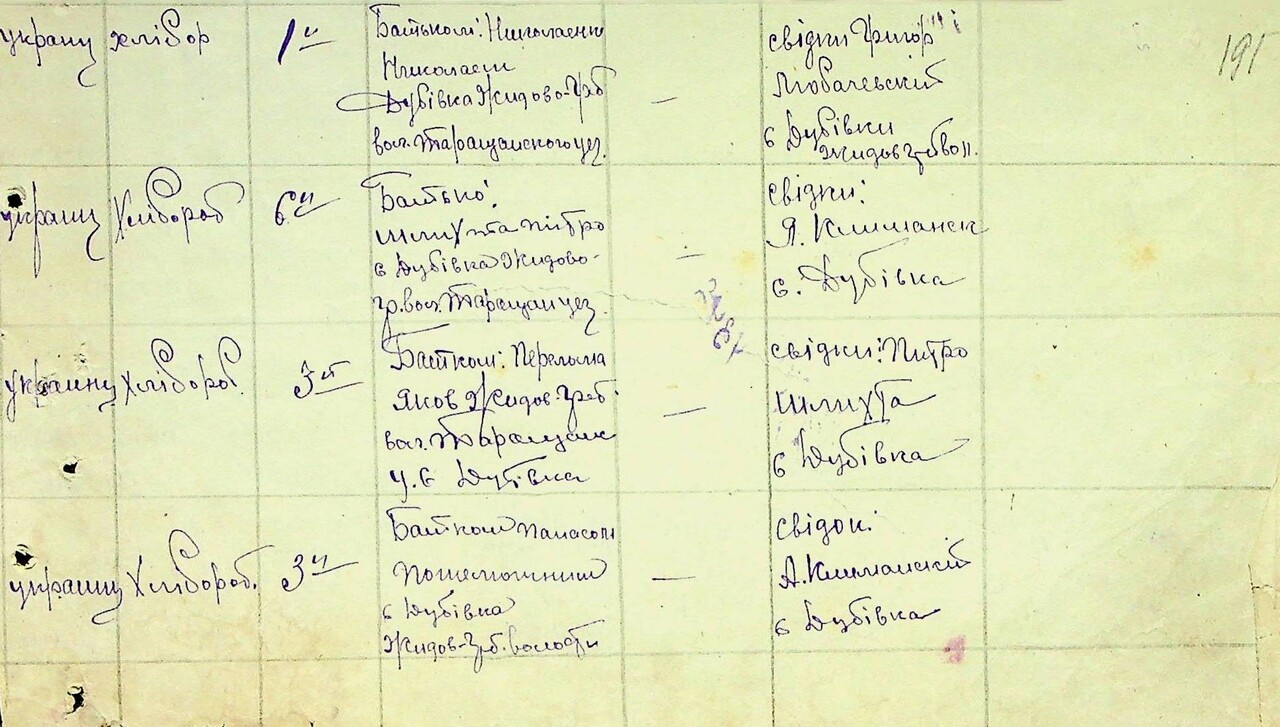 украиц хлібор 1й Батьком: Николаенко
Николаем
Дубівка Жидово-Греб
вол. Таращанского уез.
—
свідки Григор
Любачевский
с Дубівки
Жидов греб вол.
191
украиц Хлібороб 6й Батько:
Шлихта Пітро
с Дубівка Жидово-
гр. вол. Таращан уез.
—
свідки:
Я. Климанск
с. Дубівка
украинц Хлібороб. 3й Батком: Перелома
Яков Жидов Греб.
вол. Таращанс
у. с Дубівка
—
свідки: Питро
Шлихта
с Дубівка
украинц Хлібороб. 3й Батком Панасом
с Дубівка
Жидов-Греб. волости
—
свідок:
А. Климанский
с Дубівка